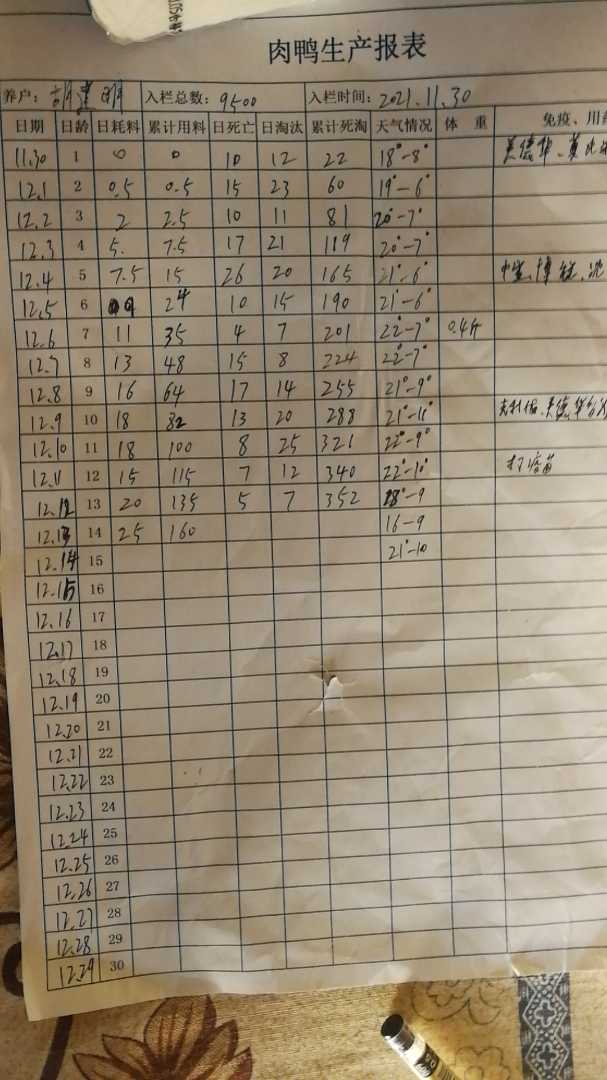 肉鸭生产报表
养户: 入栏总数: 9500 入栏时间: 2021.11.30
日期 日龄 日耗料 累计用料 日死亡 日淘汰 累计死淘 天气情况 体 重 免疫、用
11.30 1 0 0 10 12 22 18°-8°
12.1 2 0.5 0.5 15 23 60 19°-6°
12.2 3 2 2.5 10 11 81 20°-7°
12.3 4 5. 7.5 17 21 119 20°-7°
12.4 5 7.5 15 26 20 165 21°-6°
12.5 6 9 24 10 15 190 21°-6°
12.6 7 11 35 4 7 201 22°-7° 0.4斤
12.7 8 13 48 15 8 224 22°-7°
12.8 9 16 64 17 14 255 21°-9°
12.9 10 18 82 13 20 288 21°-11°
12.10 11 18 100 8 25 321 22°-9°
12.11 12 15 115 7 12 340 22°-10° 打疫苗
12.12 13 20 135 5 7 352 18°-9
12.13 14 25 160 16-9
12.14 15 21°-10
12.15 16
12.16 17
12.17 18
12.18 19
12.19 20
12.20 21
12.21 22
12.22 23
12.23 24
12.24 25
12.25 26
12.26 27
12.27 28
12.28 29
12.29 30